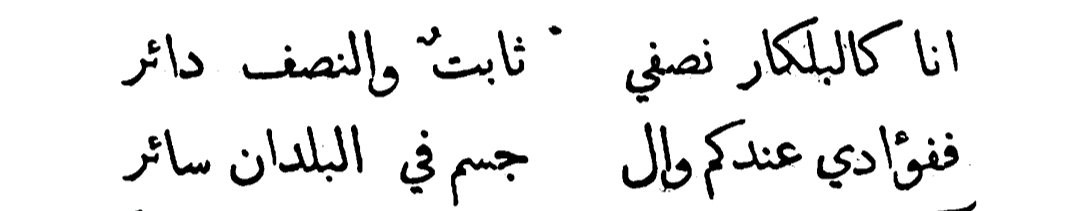 انا كالبلكار نصفي ثابتٌ والنصف دائر
ففؤادي عندكم وال جسم في البلدان سائر